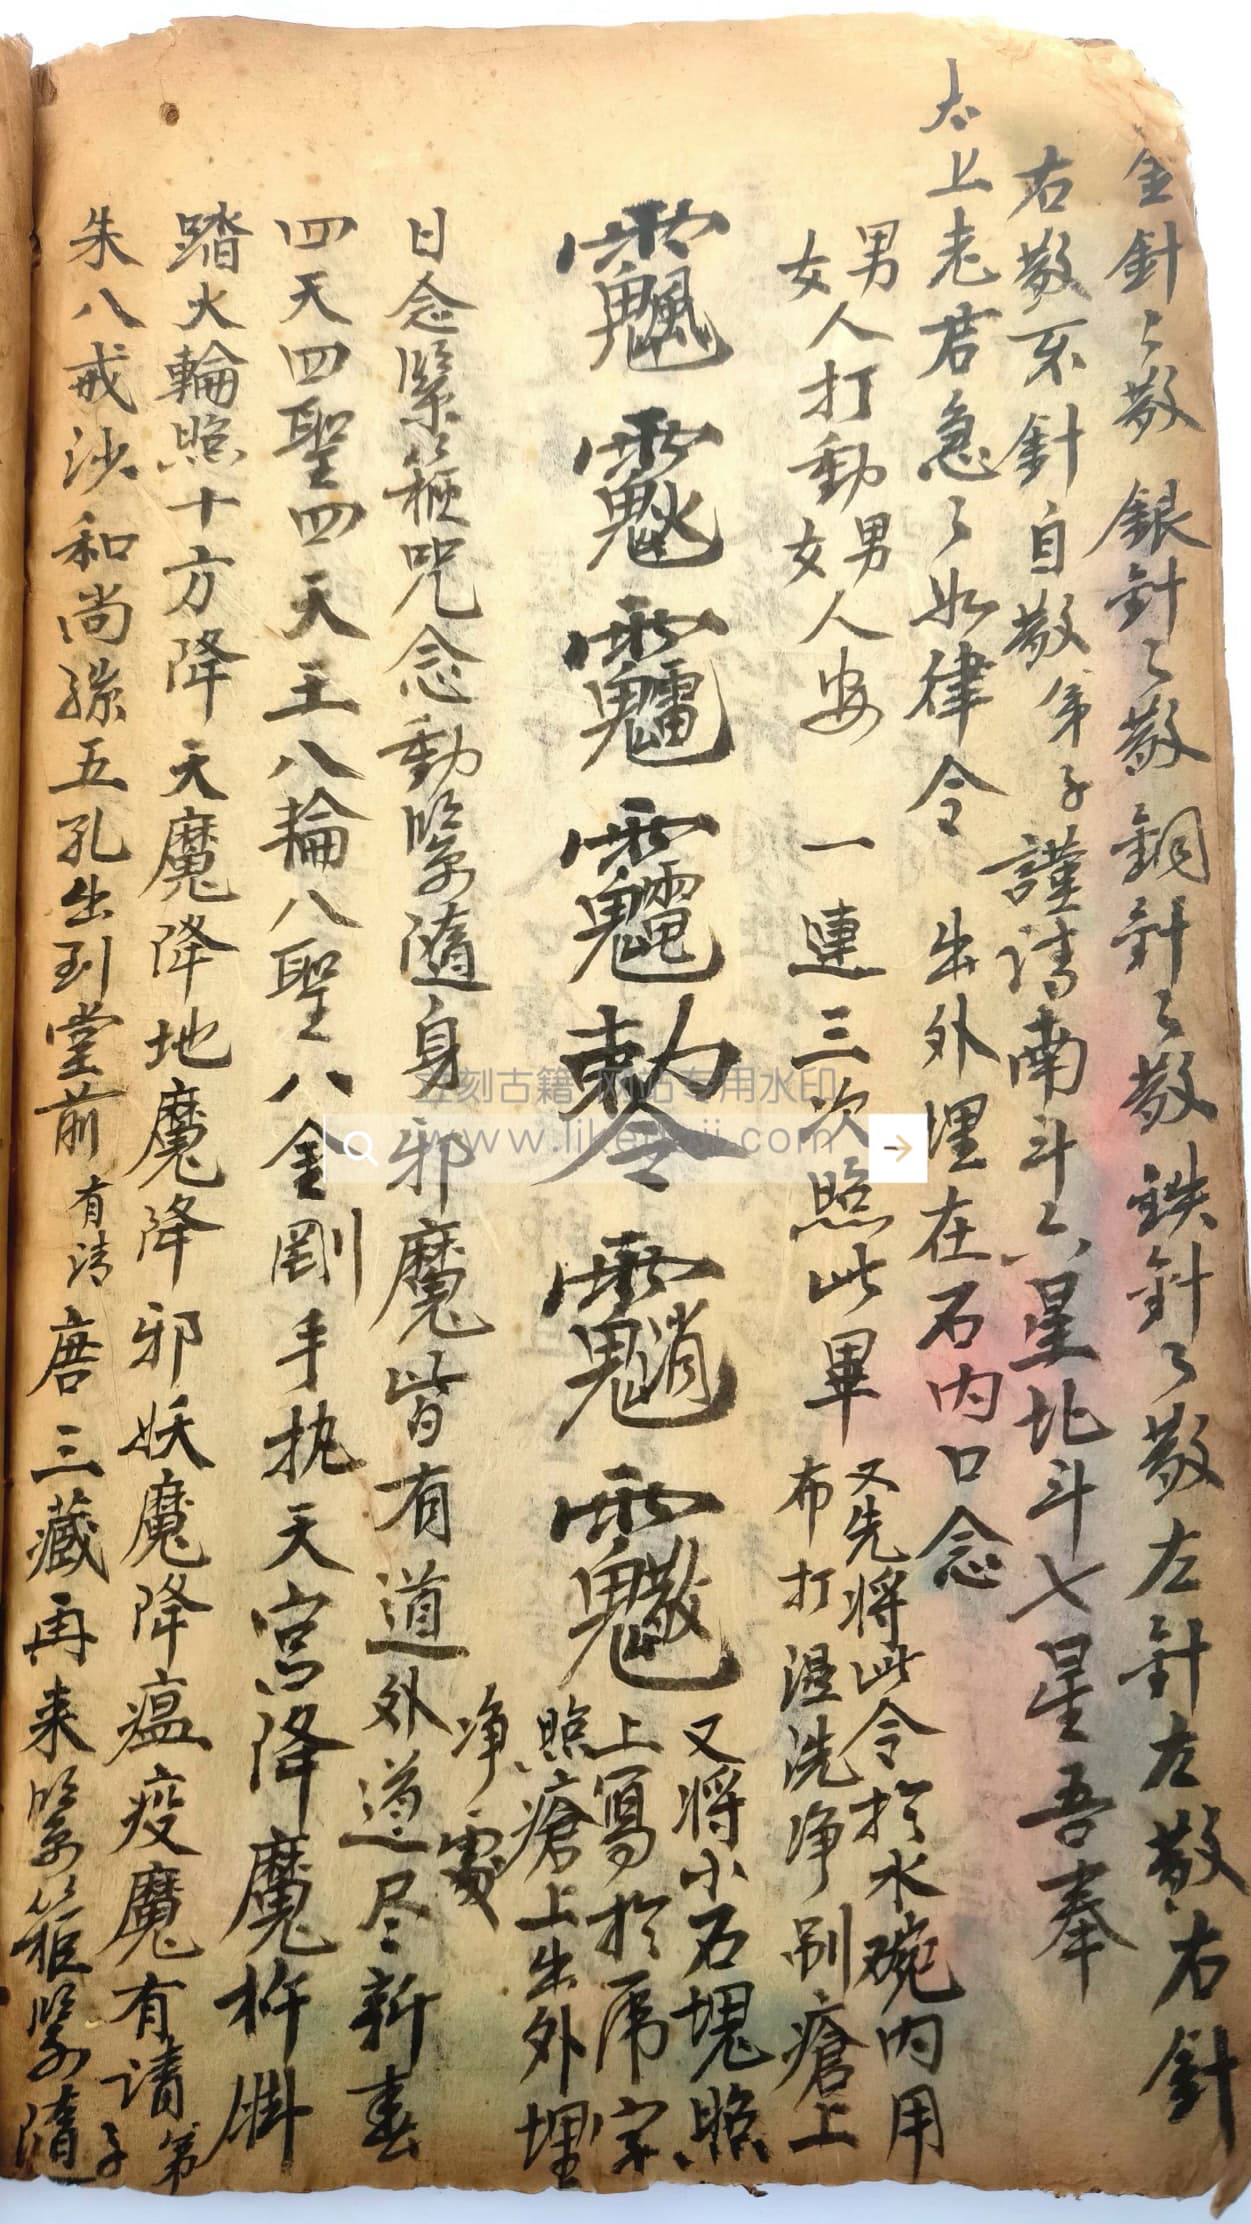 金針〻散銀針〻散銅針〻散鉄針〻散左針左散右針
右散不針自散弟子謹请南斗六星北斗七星吾奉
太上老君急〻如律令 出外埋在石内口念
男人打動男人安
女 女
一連三次照此畢
又先将此令扵水碗内用
布打湿洗净剐瘡上
勅令
又将小石塊照
上寫扵席字
照瘡上出外埋
净處
日念緊箍咒念動緊隨身邪魔皆有道外道尽斬
四天四聖四天王八輪八聖八金剛手执天宫降魔杵掛
踏火輪照十方降天魔降地魔降邪妖魔降瘟疫魔有请弟子
朱八戒沙和尚孫五孔出到堂前有请唐三藏再来緊箍緊隨
立刻古籍 网站专用水印
www.likeguji.com